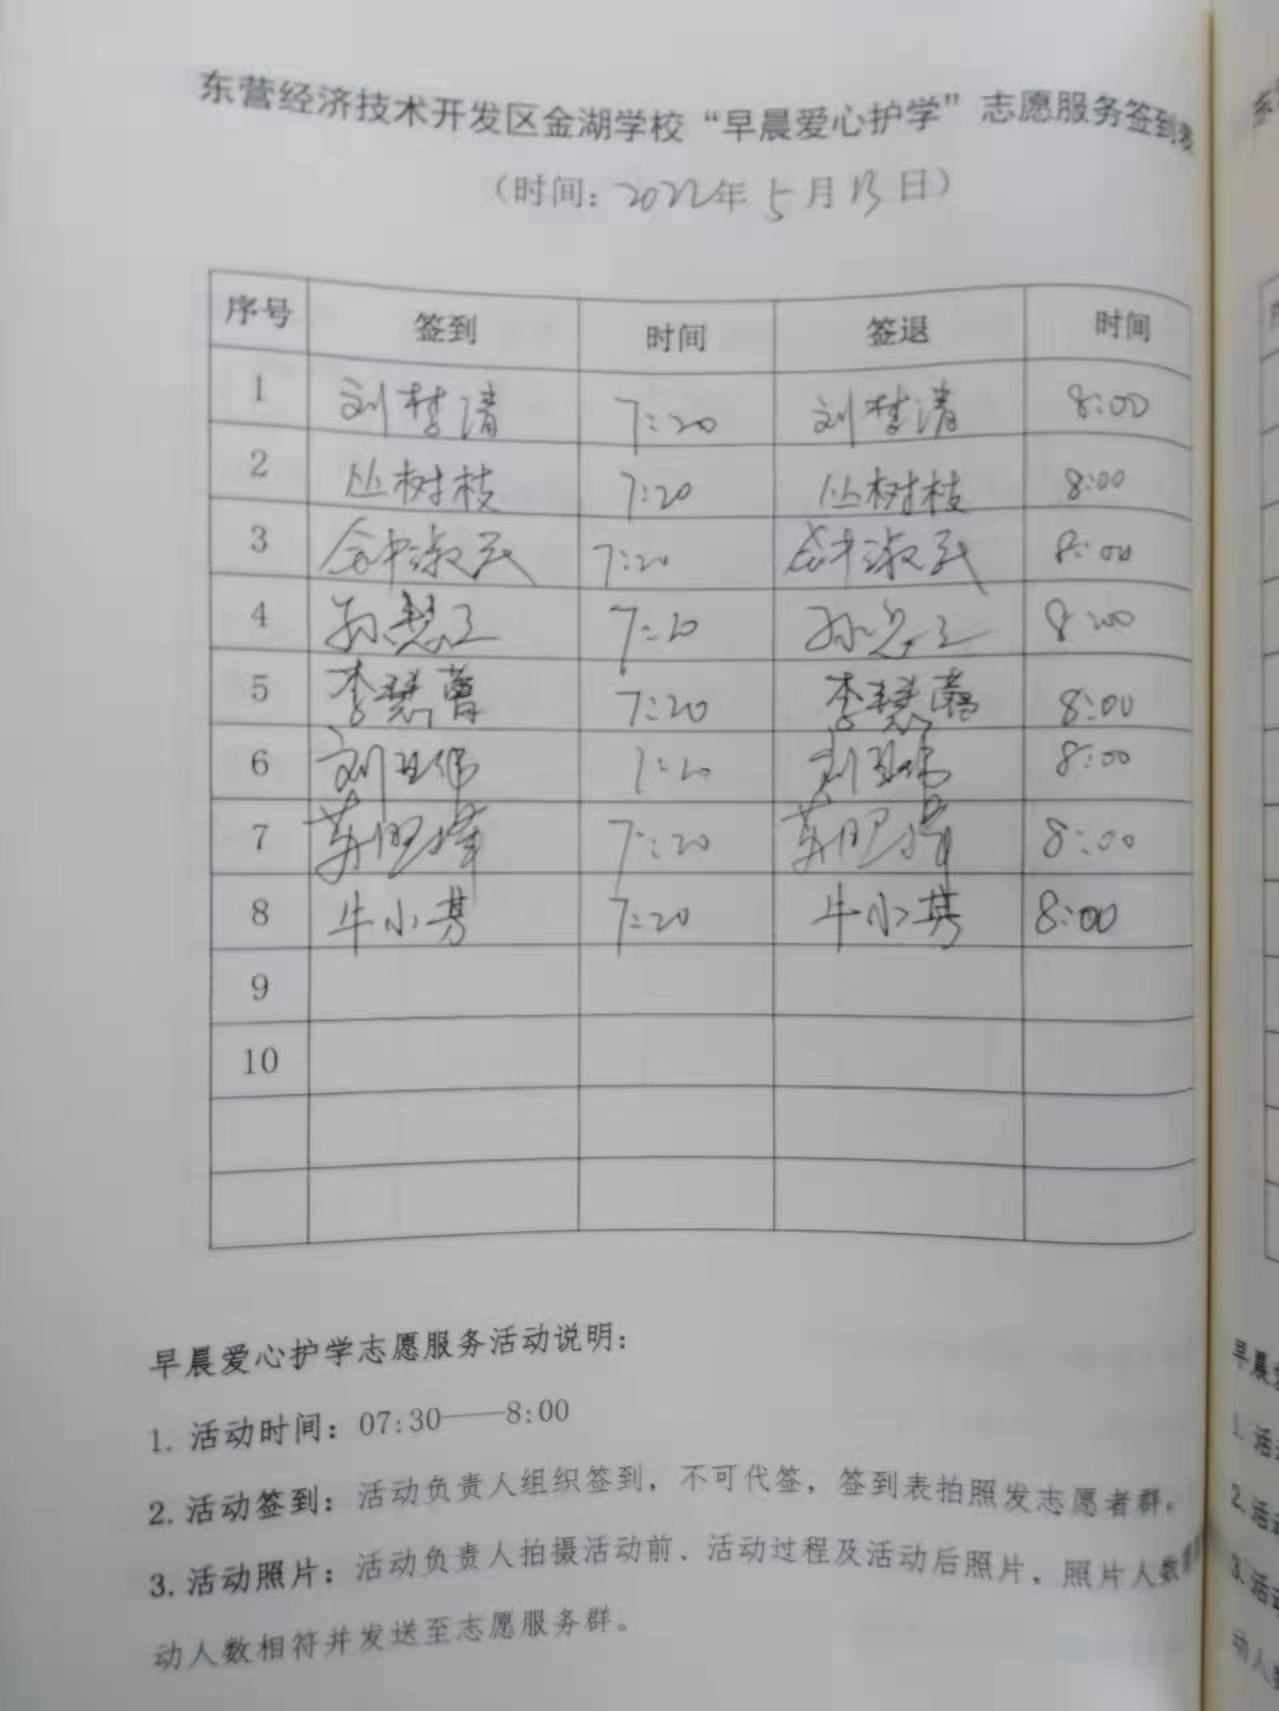 东营经济技术开发区金湖学校“早晨爱心护学”志愿服务签到表
（时间：2022年5月13日）
序号 签到 时间 签退 时间
1 刘梦清 7:20 刘梦清 8:00
2 丛树枝 7:20 丛树枝 8:00
3 7:20 8:00
4 孙慧 7:20 孙 8:00
5 李慧蕾 7:20 李慧蕾 8:00
6 刘玉伟 7:20 刘玉伟 8:00
7 7:20 8:00
8 牛小芳 7:20 牛小 8:00
9
10
早晨爱心护学志愿服务活动说明：
1. 活动时间：07:30——8:00
2. 活动签到：活动负责人组织签到，不可代签，签到表拍照发志愿者群。
3. 活动照片：活动负责人拍摄活动前、活动过程及活动后照片，照片人数
动人数相符并发送至志愿服务群。
早晨
1. 活
2. 活
3. 活
动人